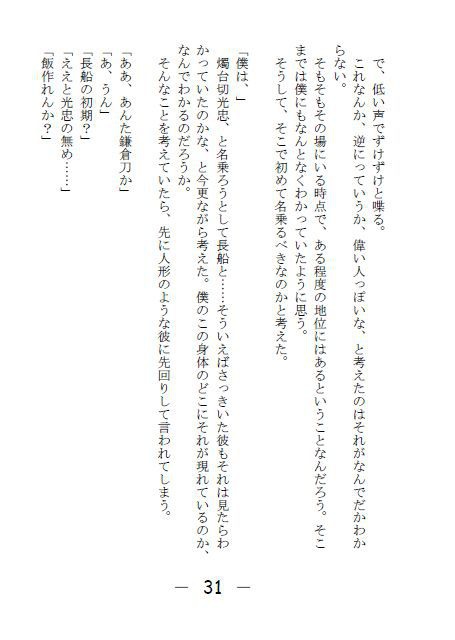 で、低い声でずけずけと喋る。
これなんか、逆にっていうか、偉い人っぽいな、と考えたのはそれがなんでだかわか
らない。
そもそもその場にいる時点で、ある程度の地位にはあるということなんだろう。そこ
までは僕にもなんとなくわかっていたように思う。
そうして、そこで初めて名乗るべきなのかと考えた。
「僕は、」
燭台切光忠、と名乗ろうとして長船と……そういえばさっきいた彼もそれは見たらわ
かっていたのかな、と今更ながら考えた。僕のこの身体のどこにそれが現れているのか、
なんでわかるのだろうか。
そんなことを考えていたら、先に人形のような彼に先回りして言われてしまう。
「ああ、あんた鎌倉刀か」
「あ、うん」
「長船の初期？」
「ええと光忠の無め……」
「飯作れんか？」
― 31 ―